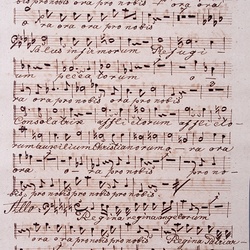 nobis ora pro nobis ora
ra ora ora pro nobis
Salus infirmorum Refugi
um peccatorum o
ra ora pro nobis ora pro nobis
Consolatrix afflictorum afflicto
rum auxilium Christianorum o ra
ora ora pro nobis pro no
bis pro nobis pro nobis pro nobis
All:o Regina regina angelorum
ora ora pro nobis pro nobis Regina Patriar